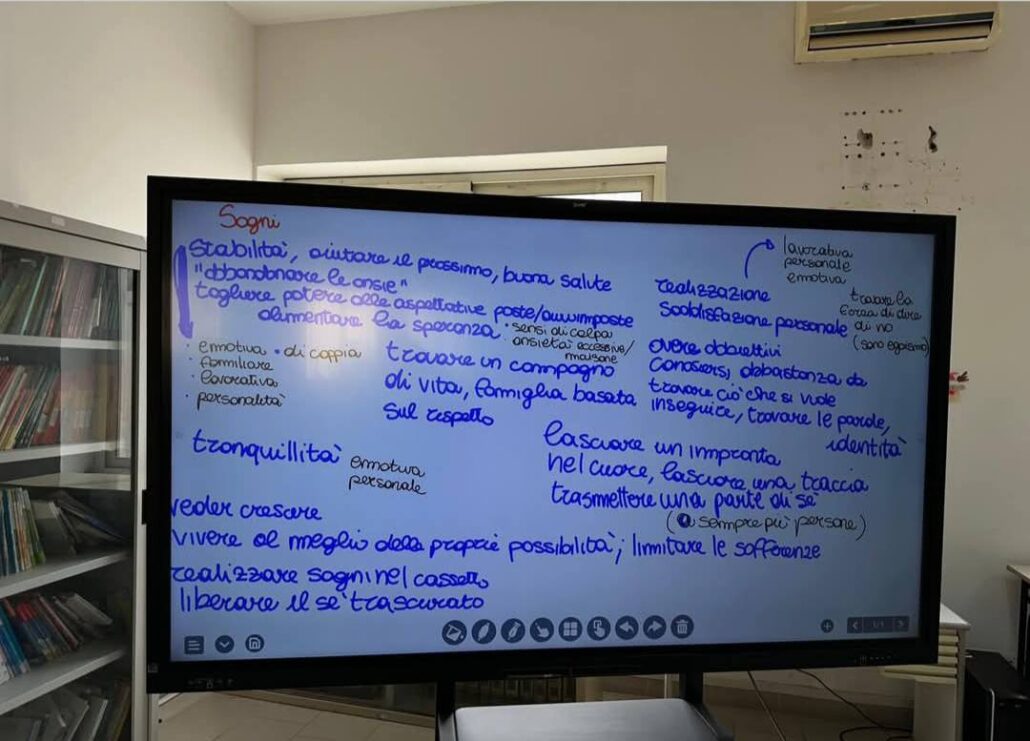 Sogni
stabilità, aiutare il prossimo, buona salute
"abbandonare le ansie"
togliere potere alle aspettative poste/autoimposte
alimentare la speranza
• sensi di colpa
ansietà eccessive/
• emotiva • di coppia
• familiare
• lavorativa
• personalità
trovare un compagno
di vita, famiglia basata
sul rispetto
lavorativa
personale
emotiva
realizzazione
Soddisfazione personale
trovare la
forza di dire
di no
(sano egoismo)
avere obbiettivi
conoscersi, abbastanza da
trovare ciò che si vuole
inseguire, trovare le parole,
identità
tranquillità
emotiva
personale
lasciare un impronta
nel cuore, lasciare una traccia
trasmettere una parte di sè
(a sempre più persone)
veder crescere
vivere al meglio delle proprie possibilità; limitare le sofferenze
realizzare sogni nel cassetto
liberare il sè trascurato
1/1